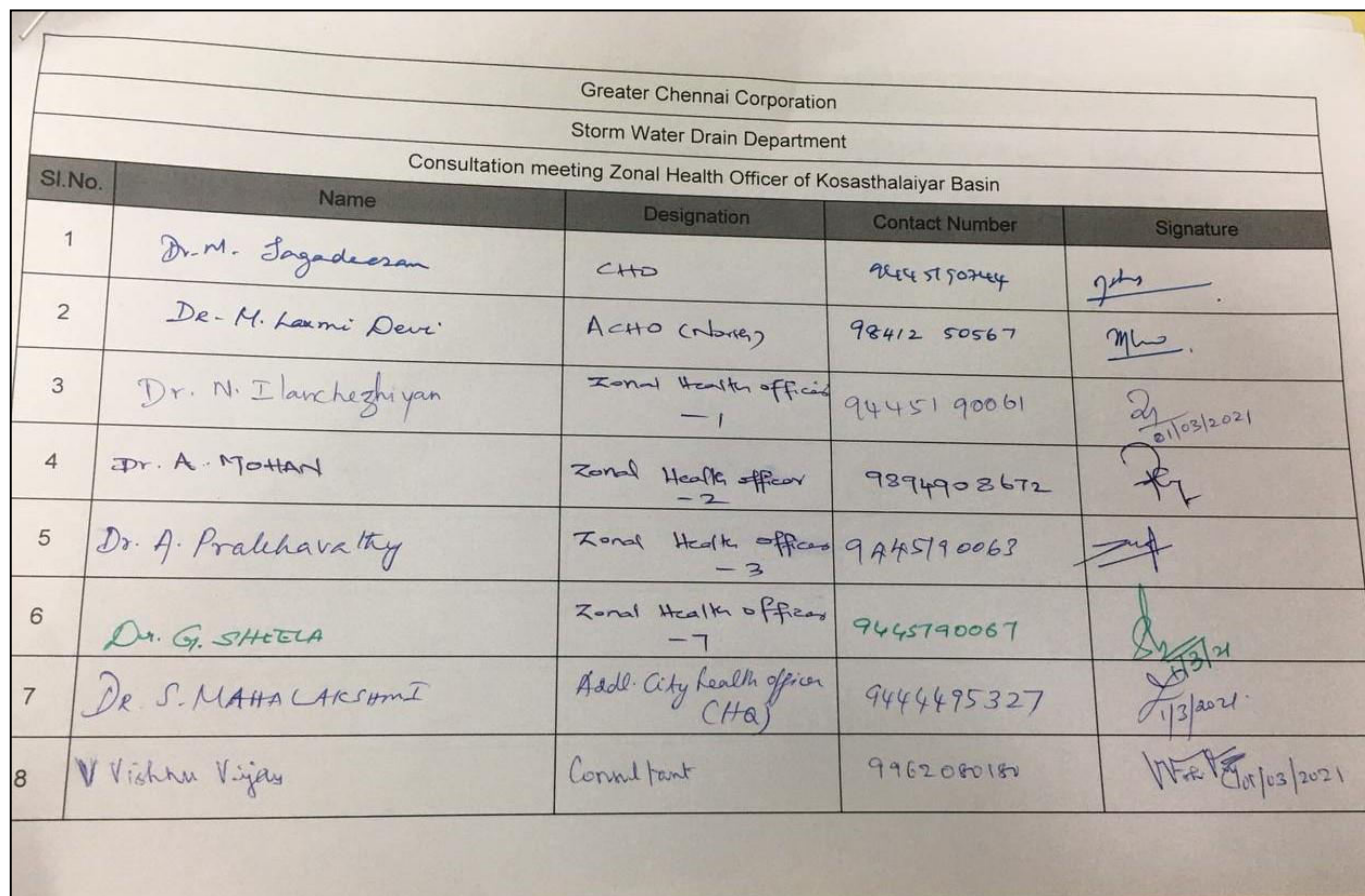 Greater Chennai Corporation
Storm Water Drain Department
Consultation meeting Zonal Health Officer of Kosasthalaiyar Basin
Sl.No. Name Designation Contact Number Signature
1 Dr. M. Jagadeesan CHO
2 Dr. M. Laxmi Devi ACHO 98412 50567
3 Dr. N. Ilanchezhiyan Zonal Health officer 94451 90061
-1 01/03/2021
4 Dr. A. MOHAN Zonal Health officer 9894908672
-2
5 Dr. A. Zonal Health officer 9445190063
-3
6 Dr. G. SHEELA Zonal Health officer 9445190067
-7 1/3/21
7 DR. S. MAHALAKSHMI Addl. City health officer 9444495327
(HQ) 1/3/2021
8 V Vishnu Vijay Consultant 9962080180 01/03/2021